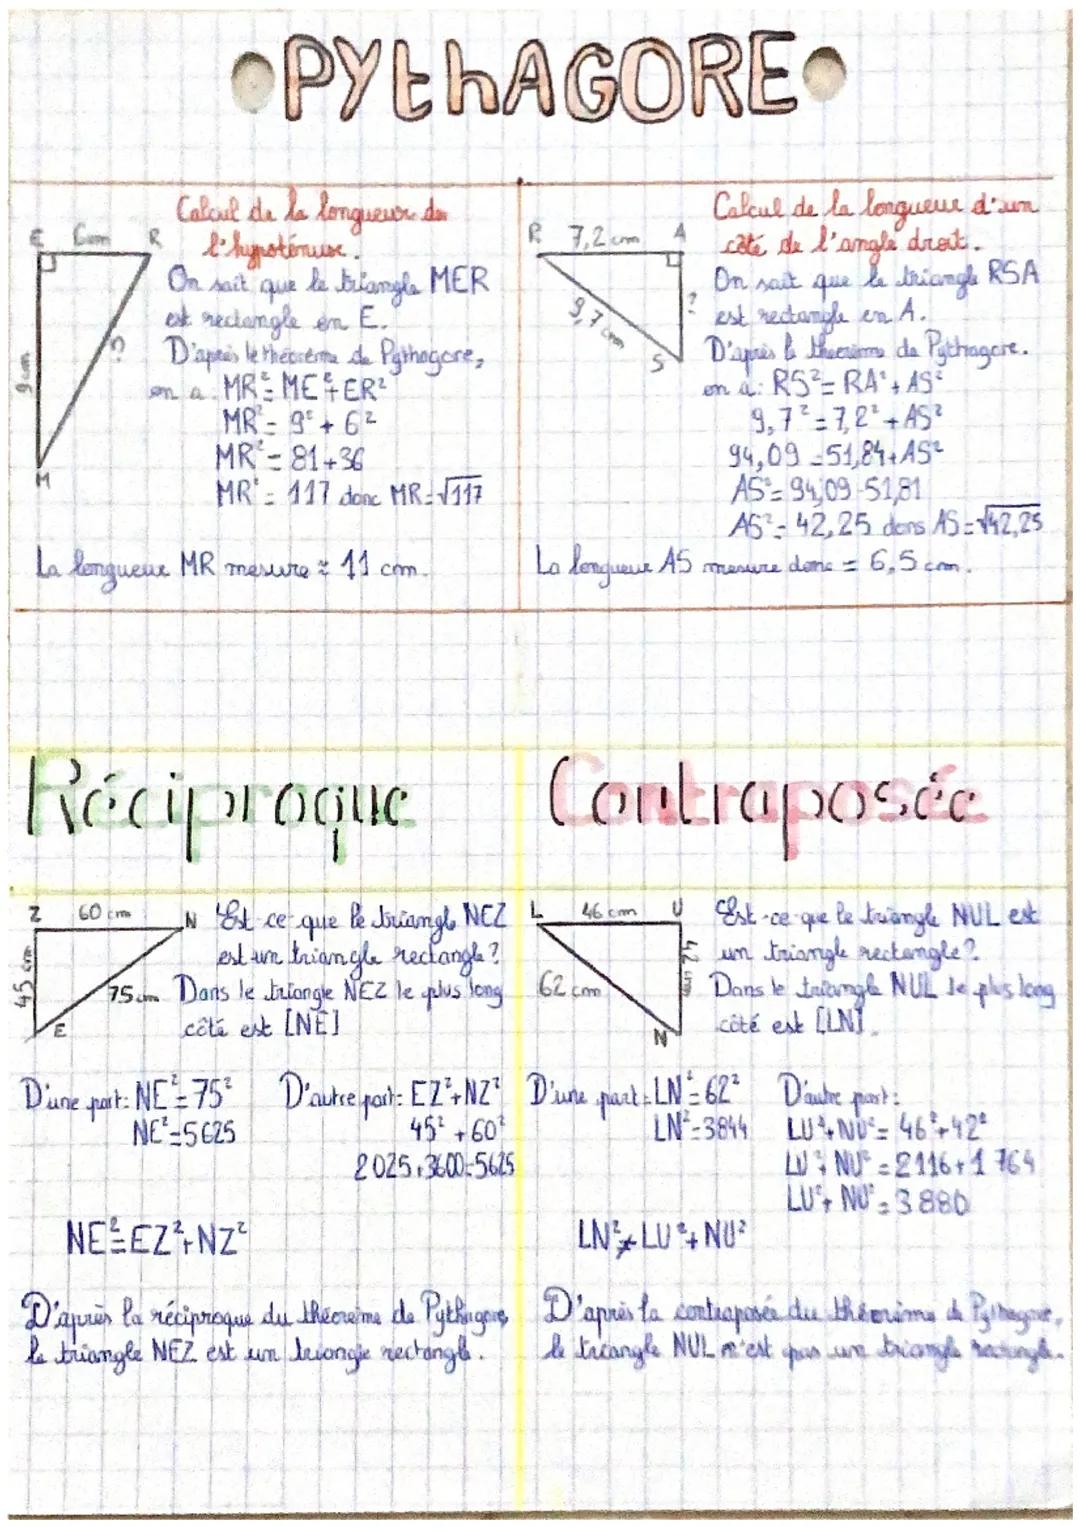 •PYthAGORE•
Calcul de la longueur de
l'hypoténuse.
E 6cm R
9 cm
?
M
On sait que le triangle MER
est rectangle en E.
D'après le théorème de Pythagore,
on a: MR²=ME²+ER²
MR²= 9² + 6²
MR²= 81+36
MR²= 117 donc MR=√117
La longueur MR mesure ≈ 11 cm.
Calcul de la longueur d'un
côté de l'angle droit.
R 7,2 cm A
9,7 cm
?
S
On sait que le triangle RSA
est rectangle en A.
D'après le théorème de Pythagore.
on a: RS²=RA²+AS²
9,7²=7,2²+AS²
94,09=51,84+AS²
AS²=94,09-51,81
AS²=42,25 dons AS=√42,25
La longueur AS mesure donc = 6,5 cm.
Réciproque
Z 60 cm N
45 cm
75 cm
E
Est-ce-que le triangle NEZ
est un triangle rectangle?
Dans le triangle NEZ le plus long
côté est [NE]
D'une part: NE²=75²
NE²=5625
D'autre part: EZ²+NZ²
45²+60²
2025+3600=5625
NE²=EZ²+NZ²
D'après la réciproque du théorème de Pythagore,
le triangle NEZ est un triangle rectangle.
Contraposée
L 46 cm U
42 cm
62 cm
N
Est-ce-que le triangle NUL est
un triangle rectangle?
Dans le triangle NUL le plus long
côté est [LN].
D'une part: LN²=62²
LN²=3844
D'autre part:
LU²+NU²= 46²+42²
LU²+NU²=2116+1 764
LU²+NU²=3880
LN²≠LU²+NU²
D'après la contraposée du théorème de Pythagore,
le triangle NUL n'est pas un triangle rectangle.